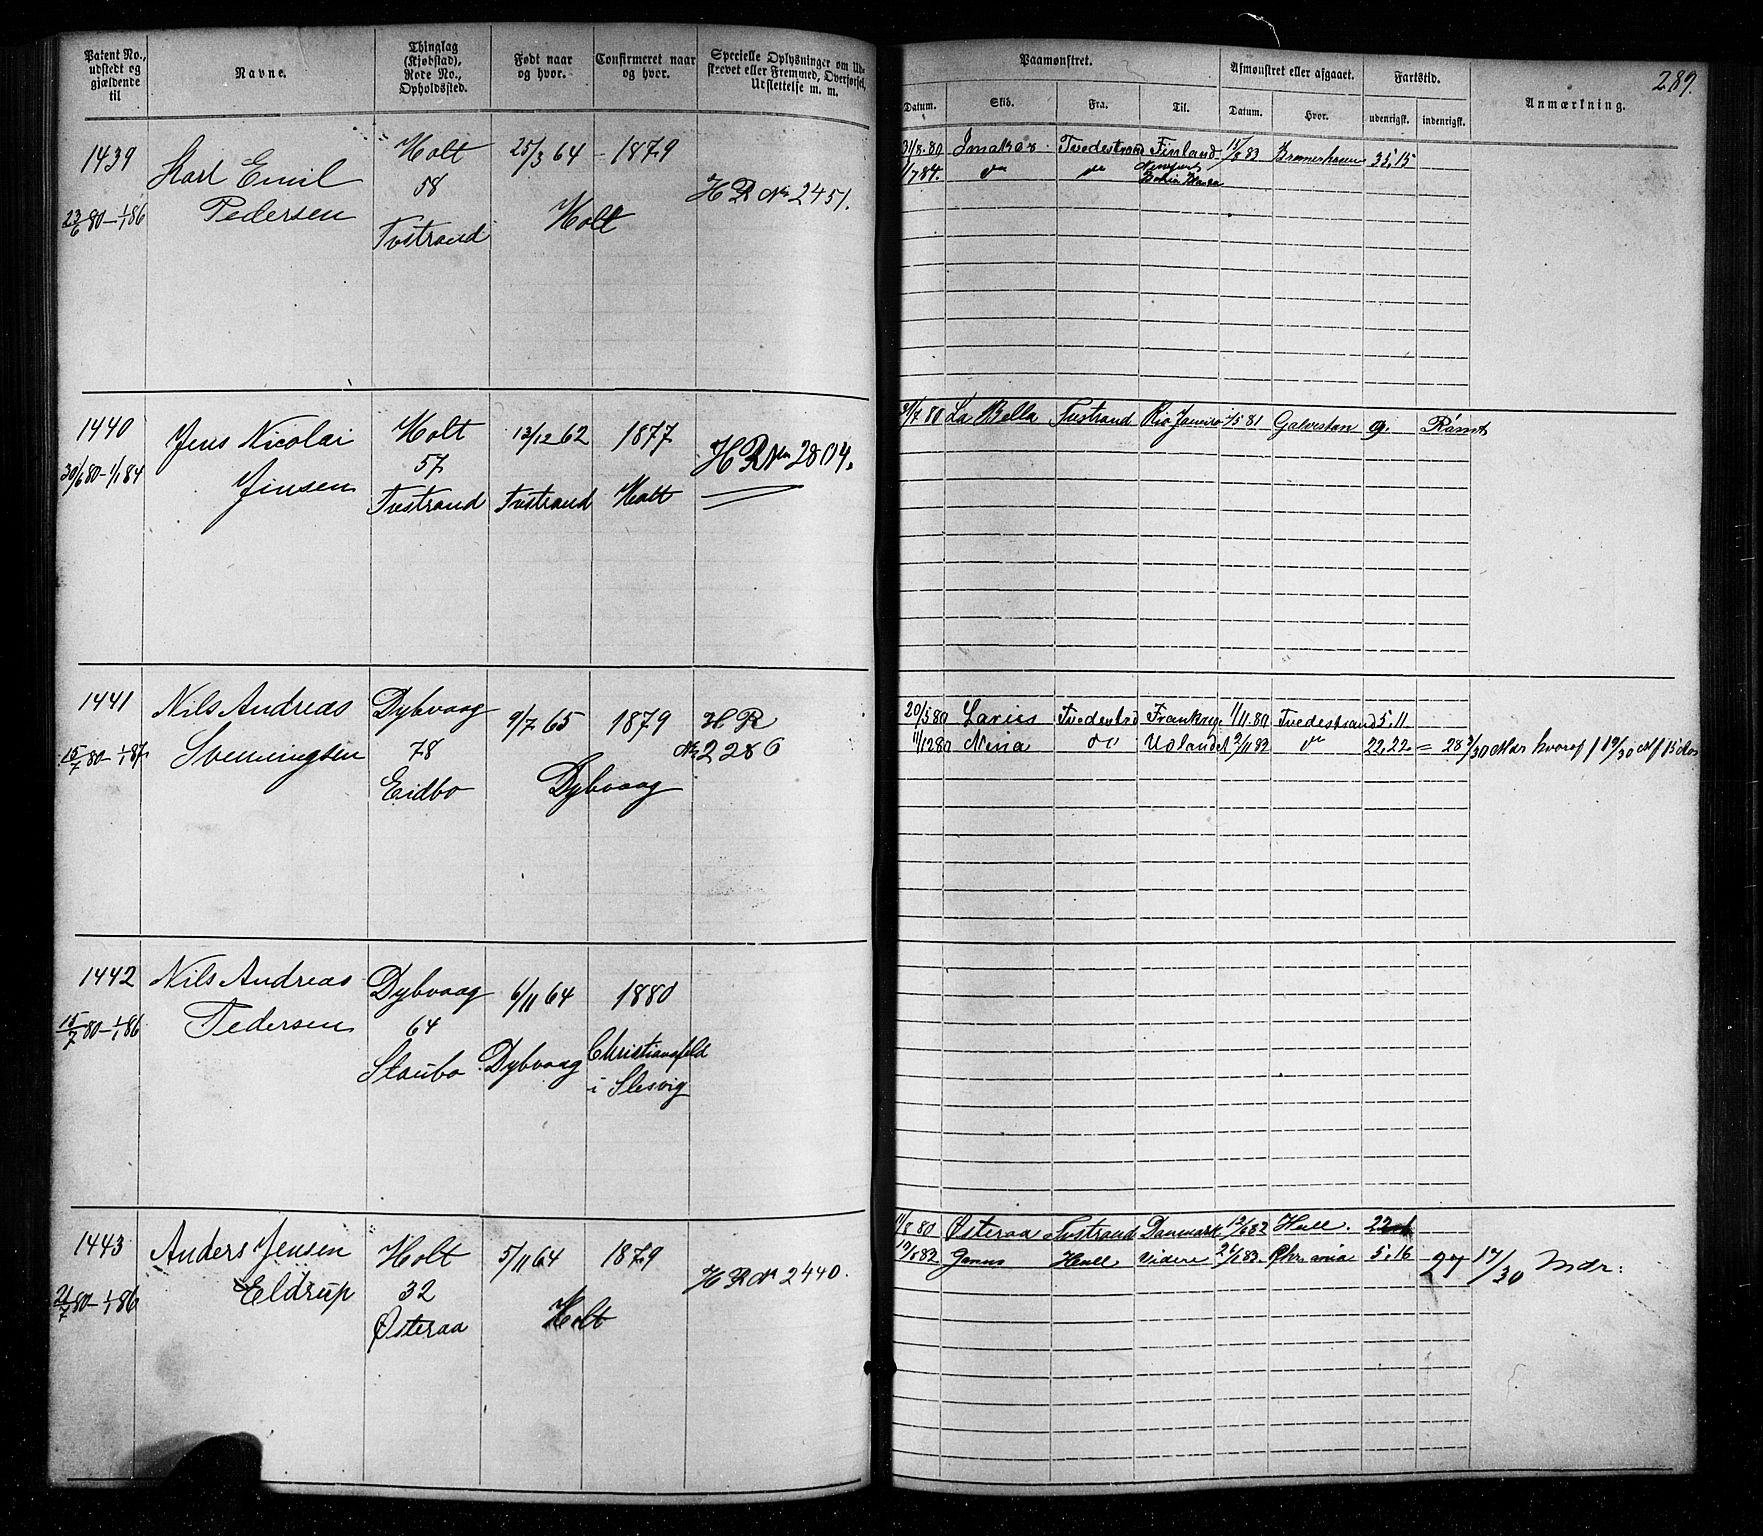 Patent No., udstedt og gjældende til
Navne.
Thinglag (Kjøbstad), Rode No., Opholdssted.
Født naar og hvor.
Confirmeret naar og hvor.
Specielle Oplysninger om Udskrevet eller Fremmed, Overførsel, Udslettelse m. m.
Paamønstret.
Afmønstret eller afgaaet.
Fartstid.
Anmærkning.
289.
Datum. Skib. Fra. Til. Datum. Hvor. udenrigsk. indenrigsk.
1439
23/6 80 – 1/1 86
Karl Emil
Pedersen
Holt
58
Tvstrand
25/3 64
1879
Holt
HR No 2451.
31/8.80 Imaker Tvedestrand Finland 15/8 83 Bremerhaven 35,15
1/7 84. do do
1440
30/6 80 – 1/1 84
Jens Nicolai
Jensen
Holt
57
Tvstrand
13/12 62
Tvstrand
1877
Holt
HR No 2804.
31/7 80 La Bella Tvstrand Rio Janeiro /5 81 Galveston 9. Rømt
1441
15/7 80 – 1/1 87
Nils Andreas
Svenningsen
Dybvaag
78
Eidbo
9/7 65
1879
Dybvaag
HR
No 2286
20/5 80 Tvedestrd Frankrige 1/11.80 Tvedestrand 5.11
11/12 80 Nina do Udlandet 2/11 82 do 22,22 = 28 /30 Mdr hvoraf
1442
15/7 80 – 1/1 86
Nils Andreas
Pedersen
Dybvaag
64
Staubo
6/11 64
Dybvaag
1880
Christiansfeld
i Slesvig
1443
21/7 80 – 1/1 86
Anders Jensen
Eldrup
Holt
32
Østeraa
5/11 64
1879
Holt
HR No 2440.
11/8 80 Østeraa Tvstrand Danmark 12/6 82 Hull. 22
Hull videre 5.16
27 17/30 Mdr.